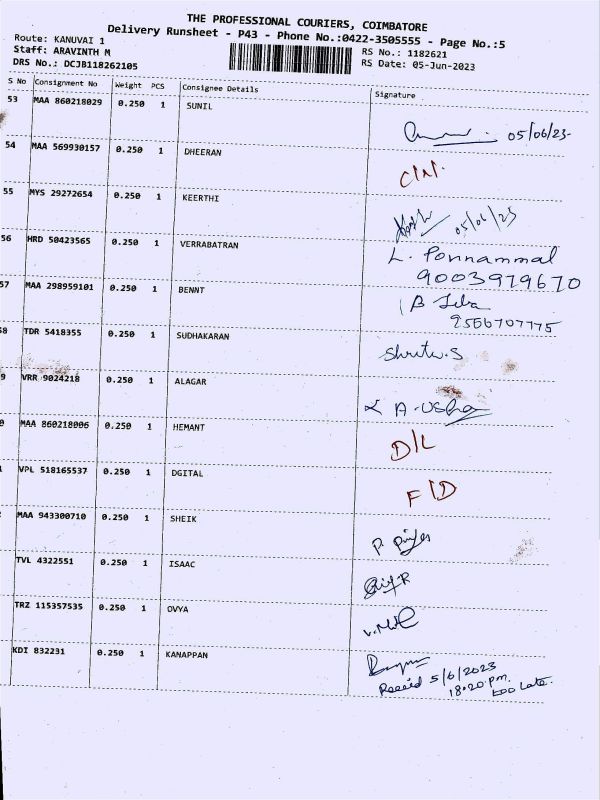 THE PROFESSIONAL COURIERS, COIMBATORE
Delivery Runsheet - P43 - Phone No.:0422-3505555 - Page No.:5
Route: KANUVAI 1
Staff: ARAVINTH M
DRS No.: DCJB118262105
RS No.: 1182621
RS Date: 05-Jun-2023
S No Consignment No Weight PCS Consignee Details Signature
53 MAA 860218029 0.250 1 SUNIL 05/06/23
54 MAA 569930157 0.250 1 DHEERAN
55 MYS 29272654 0.250 1 KEERTHI 05/06/23
56 HRD 50423565 0.250 1 VERRABATRAN L. Ponnammal
9003979670
57 MAA 298959101 0.250 1 BENNT
8 TDR 5418355 0.250 1 SUDHAKARAN
9 VRR 9024218 0.250 1 ALAGAR A. Usha
0 MAA 860218006 0.250 1 HEMANT D/L
VPL 518165537 0.250 1 DGITAL
MAA 943300710 0.250 1 SHEIK
TVL 4322551 0.250 1 ISAAC
TRZ 115357535 0.250 1 OVYA
KDI 832231 0.250 1 KANAPPAN
5/6/2023
18.20 pm.
too Late.